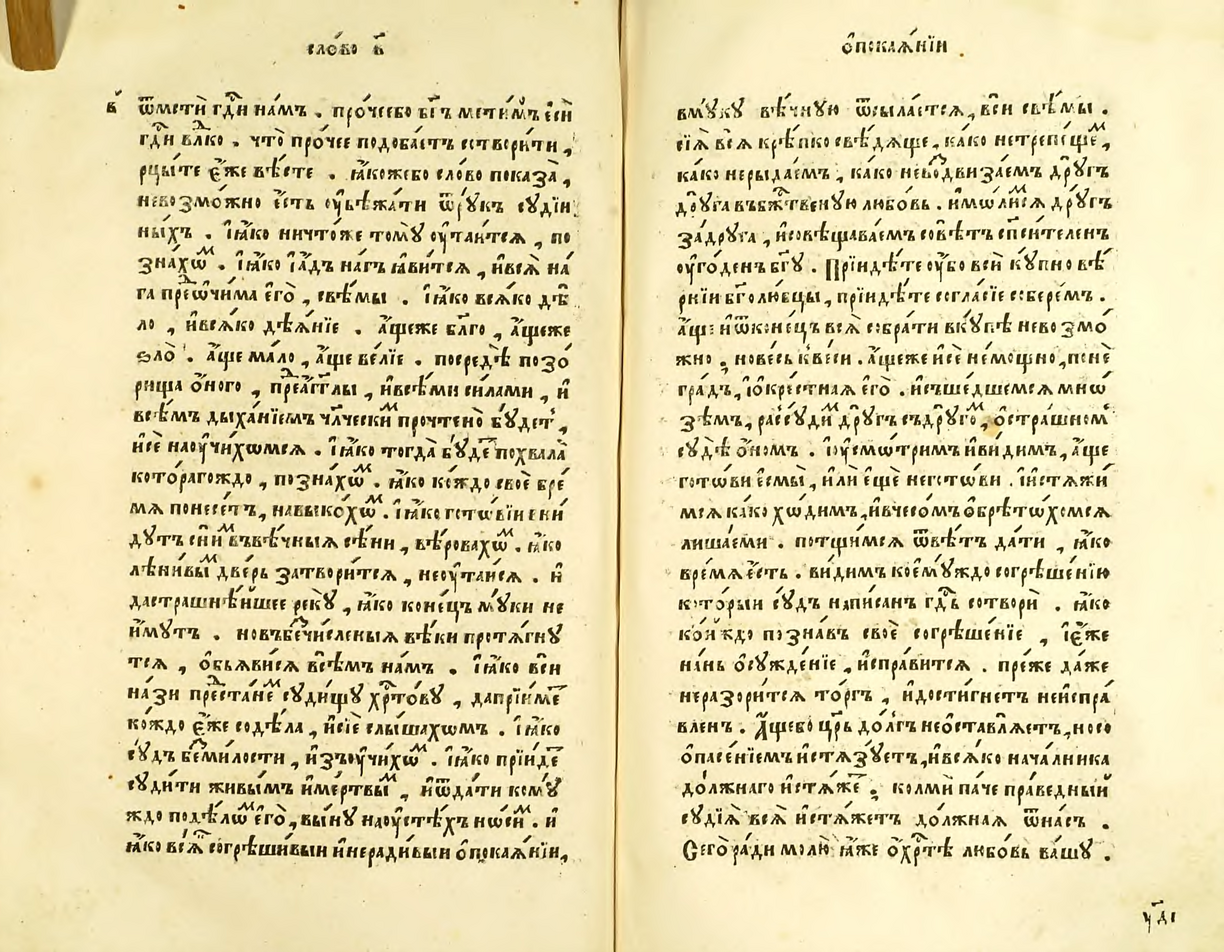 сло́во в҃
в҃ ѿмстѝ гдⷭ҇и на́мъ . про́чеебо бг҃ъ мсти́мъ є҆сѝ
гдⷭ҇и влⷣко . что̀ про́чее подобаетъ сотвори́ти ,
рцы́те є҆́же вѣ́сте . ꙗ҆́кожебо сло́во показа̀ ,
невозмо́жно є҆́сть оу҆бѣжа́ти ѿрꙋ́къ сꙋдїи
ны́хъ . і҆ꙗ҆́ко ничто́же томꙋ̀ оу҆таи́тсѧ , по
зна́хѡⷨ . і҆ꙗ҆́ко і҆а҆́дъ на́гъ ꙗ҆ви́тсѧ , и҆всѧ̀ на
га преⷣѻ҆чи́ма є҆го̀ , свѣ́мы . і҆ꙗ҆́ко всѧ́ко дѣ́
ло , и҆всѧ́ко дѣѧ́нїе . а҆́щеже бл҃го , а҆́щеже
ѕло̀ . а҆́ще ма́ло , а҆́ще ве́лїе . посредѣ̀ позо́
рища о҆́ного , преⷣа҆́гг҃лы , и҆всѣ́ми си́лами , и҆
всѣ́мъ дыха́нїемъ чл҃ческиⷨ прочтено̀ бꙋ́детⷯ ,
и҆сѐ наоу҆чи́хѡмсѧ . і҆ꙗ҆́ко тогда̀ бꙋ́деⷮ похвала̀
кото́рагождо , позна́хѡⷨ . ꙗ҆́ко ко́ждо своѐ бре́
мѧ понесе́тъ , навыко́хѡⷨ . і҆ꙗ҆́ко гото́вїи вни́
дꙋтъ сни́ⷨ въвѣ́чныѧ сѣ́ни , вѣ́ровахѡⷨ . ꙗ҆́ко
лѣни́выⷨ две́рь затвори́тсѧ , неоу҆таи́сѧ . и҆
дастрашнѣ́йшее рекꙋ̀ , ꙗ҆́ко коне́цъ мꙋ́ки не
и҆́мꙋтъ . новъбе́чи́сленыѧ вѣ́ки протѧ́гнꙋ
тсѧ , о҆бьѧви́сѧ всѣ́мъ на́мъ . і҆ꙗ҆́ко всѝ
на́зи преⷣста́неⷨ сꙋди́щꙋ хрⷭ҇то́вꙋ , даприи҆́меⷮ
ко́ждо є҆́же содѣ́ла , и҆сїѐ слы́шахомъ . і҆ꙗ҆́ко
сꙋ́дъ беⷥми́лости , и҆зъоу҆чи́хѡⷨ . і҆ꙗ҆́ко прїи́деⷮ
сꙋди́ти живы́мъ и҆ме́ртвыⷨ , и҆ѿда́ти комꙋ́
ждо подѣ́лѡⷨ є҆го̀ , вы́нꙋ наоу҆стѣ́хъ но́сиⷨ . и҆
ꙗ҆́ко всѧ́ⷦ согрѣши́выи и҆неради́выи о҆покаѧ́нїи ,
о҆покаѧ́нїи .
вмꙋ́кꙋ вѣ́чнꙋю ѿсыла́етсѧ , всѝ свѣ́мы .
сїѧ̀ всѧ̀ крѣ́пко свѣ́дѧще , ка́ко нетрепе́щеⷨ ,
ка́ко нерыда́емъ , ка́ко неводвиза́емъ дрꙋ́гъ
дрꙋ́га въбжⷭ҇твенꙋю любо́вь . и҆мѡ́лимсѧ дрꙋ́гъ
задрꙋ́га , и҆совѣщава́емъ совѣ́тъ сп҃си́теленъ
оу҆го́денъ бг҃ꙋ . Прїидѣ́те оу҆́бо всѝ кꙋ́пно вѣ́
рнїи бг҃олю́бцы , прїидѣ́те согла́сїе собере́мъ .
а҆́ще и҆ѿконе́цъ всѧ̀ собра́ти вкꙋ́пѣ невозмо́
жно , нове́сь кве́си . а҆́щеже и҆сѐ не́мощно , понѐ
гра́дъ , і҆ѻ҆кре́стнаѧ є҆го̀ . и҆съше́дшемсѧ мнѡ́
зѣмъ , рассꙋ́диⷨ дрꙋ́гъ съдрꙋ́гоⷨ , о҆стра́шномⷯ
сꙋдѣ̀ о҆́номъ . і҆оу҆смо́тримъ и҆ви́димъ , а҆́ще
гото́ви є҆смы̀ , и҆лѝ є҆щѐ него́тови . і҆и҆стѧжи́
мсѧ ка́ко хѡ́димъ , и҆вчесо́мъ о҆брѣто́хомсѧ
лиша́еми . потщи́мсѧ ѿвѣ́тъ да́ти , ꙗ҆́ко
вре́мѧ є҆́сть . ви́димъ коемꙋ́ждо согрѣше́нїю
кото́рыи сꙋ́дъ напи́санъ гдⷭ҇ь сотворѝ . ꙗ҆́ко
ко́йждо позна́въ своѐ согрѣше́нїе , і҆є҆́же
на́нь о҆сꙋжде́нїе , и҆спра́витсѧ . пре́же да́же
неразори́тсѧ то́ргъ , и҆дости́гнетъ неи҆спра́
вленъ . А҆́щебо цр҃ь до́лгъ неѡ҆ставлѧ́етъ , носо
о҆пасе́нїемъ и҆стѧзꙋ́етъ , и҆всѧ́ко нача́лника
до́лжнаго и҆стѧ́жеⷮ . колмѝ па́че пра́ведный
сꙋдїѧ̀ всѧ̀ и҆стѧ́жетъ до́лжнаѧ ѿна́съ .
Сего̀ ра́ди молю̀ ꙗ҆́же о҆хрⷭ҇тѣ̀ любо́вь ва́шꙋ .